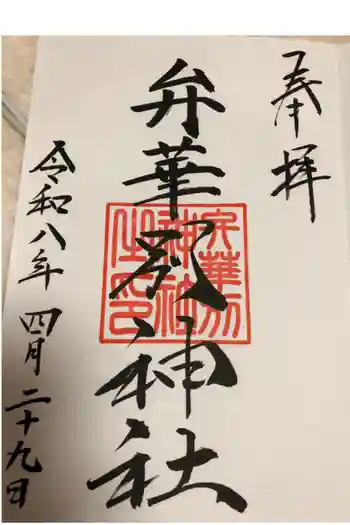 奉拝
弁華別神社
弁華別神社之印
令和八年四月二十九日